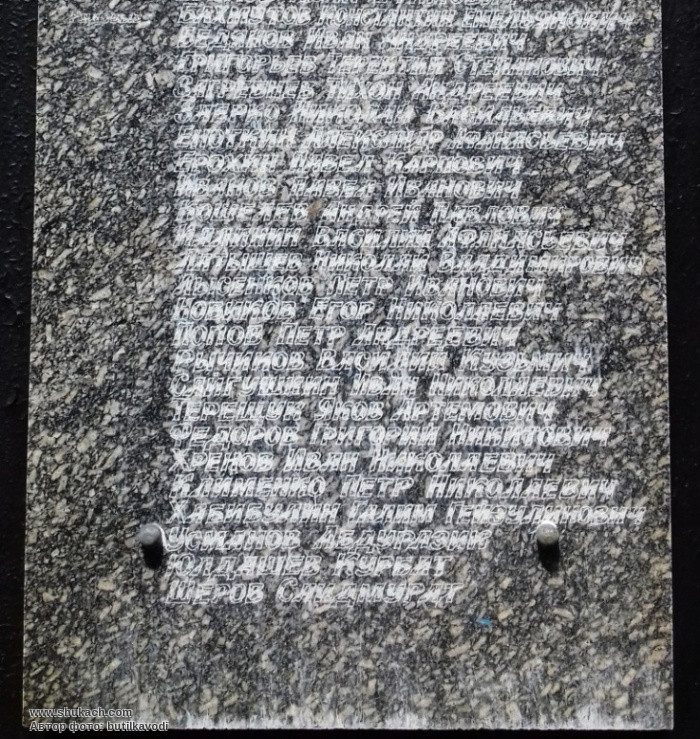 Бахмутов Константин Емельянович
Ведяков Иван Андреевич
Григорьев Терентий Степанович
Загребнев Тихон Андреевич
Забирко Николай Васильевич
Енюткин Александр Афанасьевич
Ерохин Павел Карпович
Иванов Павел Иванович
Кошелев Андрей Павлович
Малинин Василий Афанасьевич
Латышев Николай Владимирович
Лысенков Петр Иванович
Новиков Егор Николаевич
Попов Петр Андреевич
Рычиков Василий Кузьмич
Слигушкин Иван Николаевич
Терещук Яков Артемович
Федоров Григорий Никитович
Хренов Иван Николаевич
Клименко Петр Николаевич
Хабибулин
Усманов
Юлдашев Курбат
Шеров Саидмурат
www.shukach.com
Автор фото: butikavodi